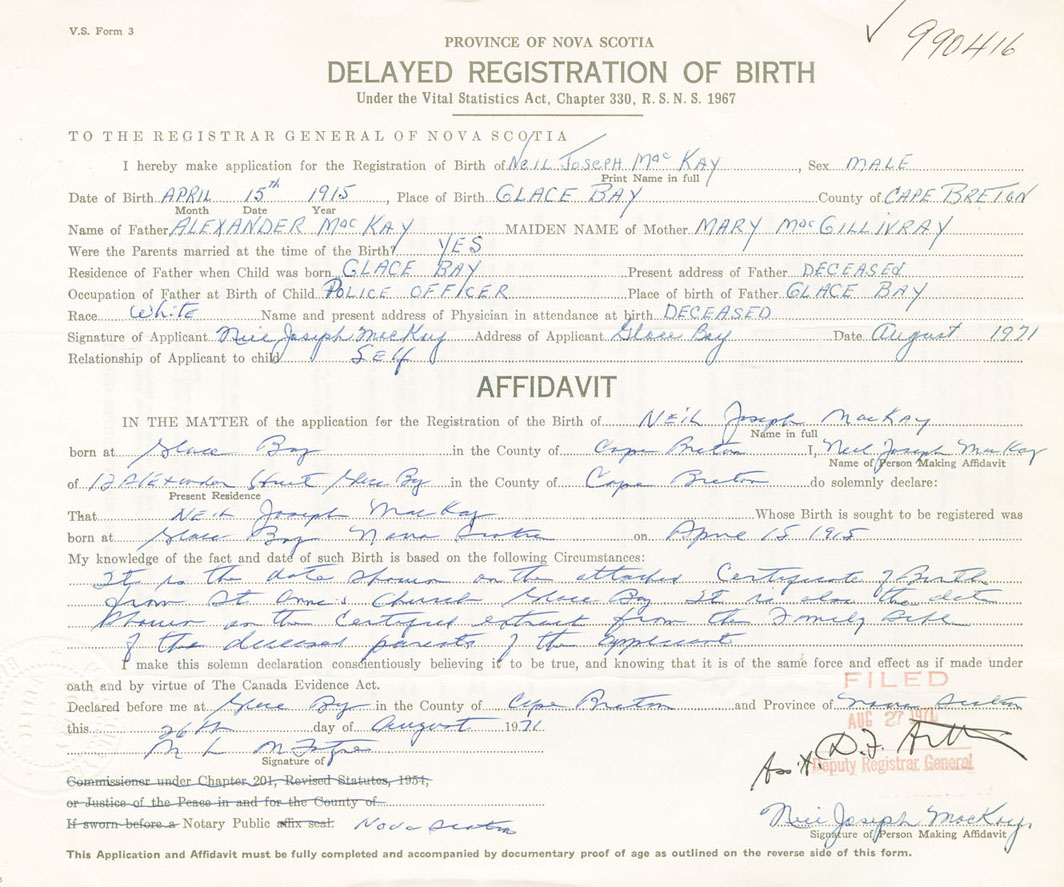 V.S. Form 3
990416
PROVINCE OF NOVA SCOTIA
DELAYED REGISTRATION OF BIRTH
Under the Vital Statistics Act, Chapter 330, R.S.N.S. 1967
TO THE REGISTRAR GENERAL OF NOVA SCOTIA
I hereby make application for the Registration of Birth of NEIL JOSEPH MacKAY, Sex MALE
Print Name in full
Date of Birth APRIL 15th 1915, Place of Birth GLACE BAY County of CAPE BRETON
Month Date Year
Name of Father ALEXANDER MacKAY MAIDEN NAME of Mother MARY MacGILLIVRAY
Were the Parents married at the time of the Birth? YES
Residence of Father when Child was born GLACE BAY Present address of Father DECEASED
Occupation of Father at Birth of Child POLICE OFFICER Place of birth of Father GLACE BAY
Race White Name and present address of Physician in attendance at birth DECEASED
Signature of Applicant Neil Joseph MacKay Address of Applicant Glace Bay Date August 1971
Relationship of Applicant to child Self
AFFIDAVIT
IN THE MATTER of the application for the Registration of the Birth of NEIL Joseph MacKay
Name in full
born at Glace Bay in the County of Cape Breton I, Neil Joseph MacKay
Name of Person Making Affidavit
of 12 Alexander Street Glace Bay in the County of Cape Breton do solemnly declare:
Present Residence
That NEIL Joseph MacKay Whose Birth is sought to be registered was
born at Glace Bay Nova Scotia on April 15 1915
My knowledge of the fact and date of such Birth is based on the following Circumstances:
It is the date shown on the attached Certificate of Birth
from St. Anne's Church Glace Bay. It is also the date
shown on the certified extract from the Family Bible
of the deceased parents of the applicant
I make this solemn declaration conscientiously believing it to be true, and knowing that it is of the same force and effect as if made under
oath and by virtue of The Canada Evidence Act.
FILED
Declared before me at Glace Bay in the County of Cape Breton and Province of Nova Scotia
AUG 27 1971
this 26th day of August 1971
M L
Signature of
Ass't. D. F.
Deputy Registrar General
Commissioner under Chapter 201, Revised Statutes, 1954,
or Justice of the Peace in and for the County of
If sworn before a Notary Public affix seal. Nova Scotia
Neil Joseph MacKay
Signature of Person Making Affidavit
This Application and Affidavit must be fully completed and accompanied by documentary proof of age as outlined on the reverse side of this form.